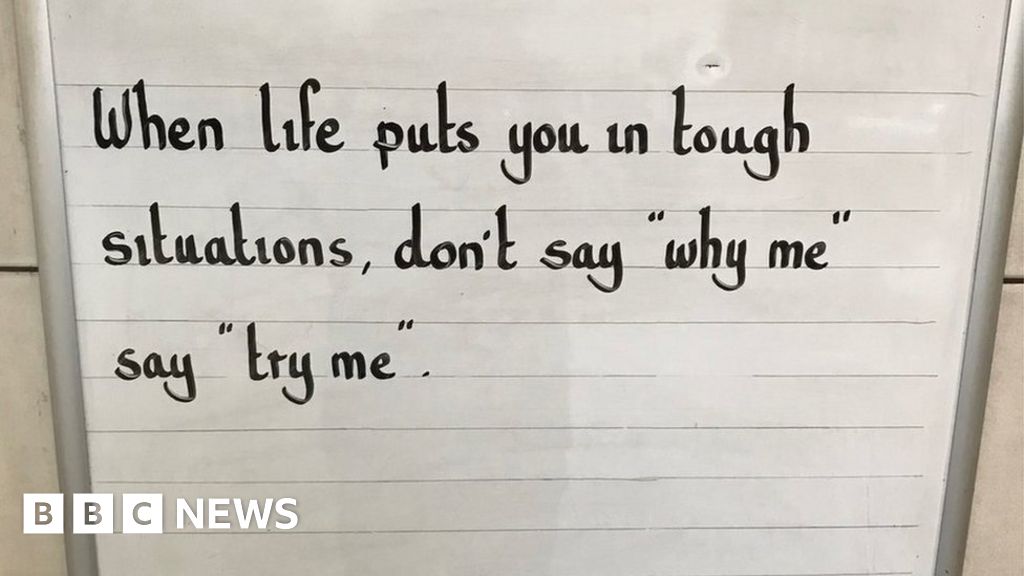 When life puts you in tough
situations, don't say "why me"
say "try me".
BBC NEWS